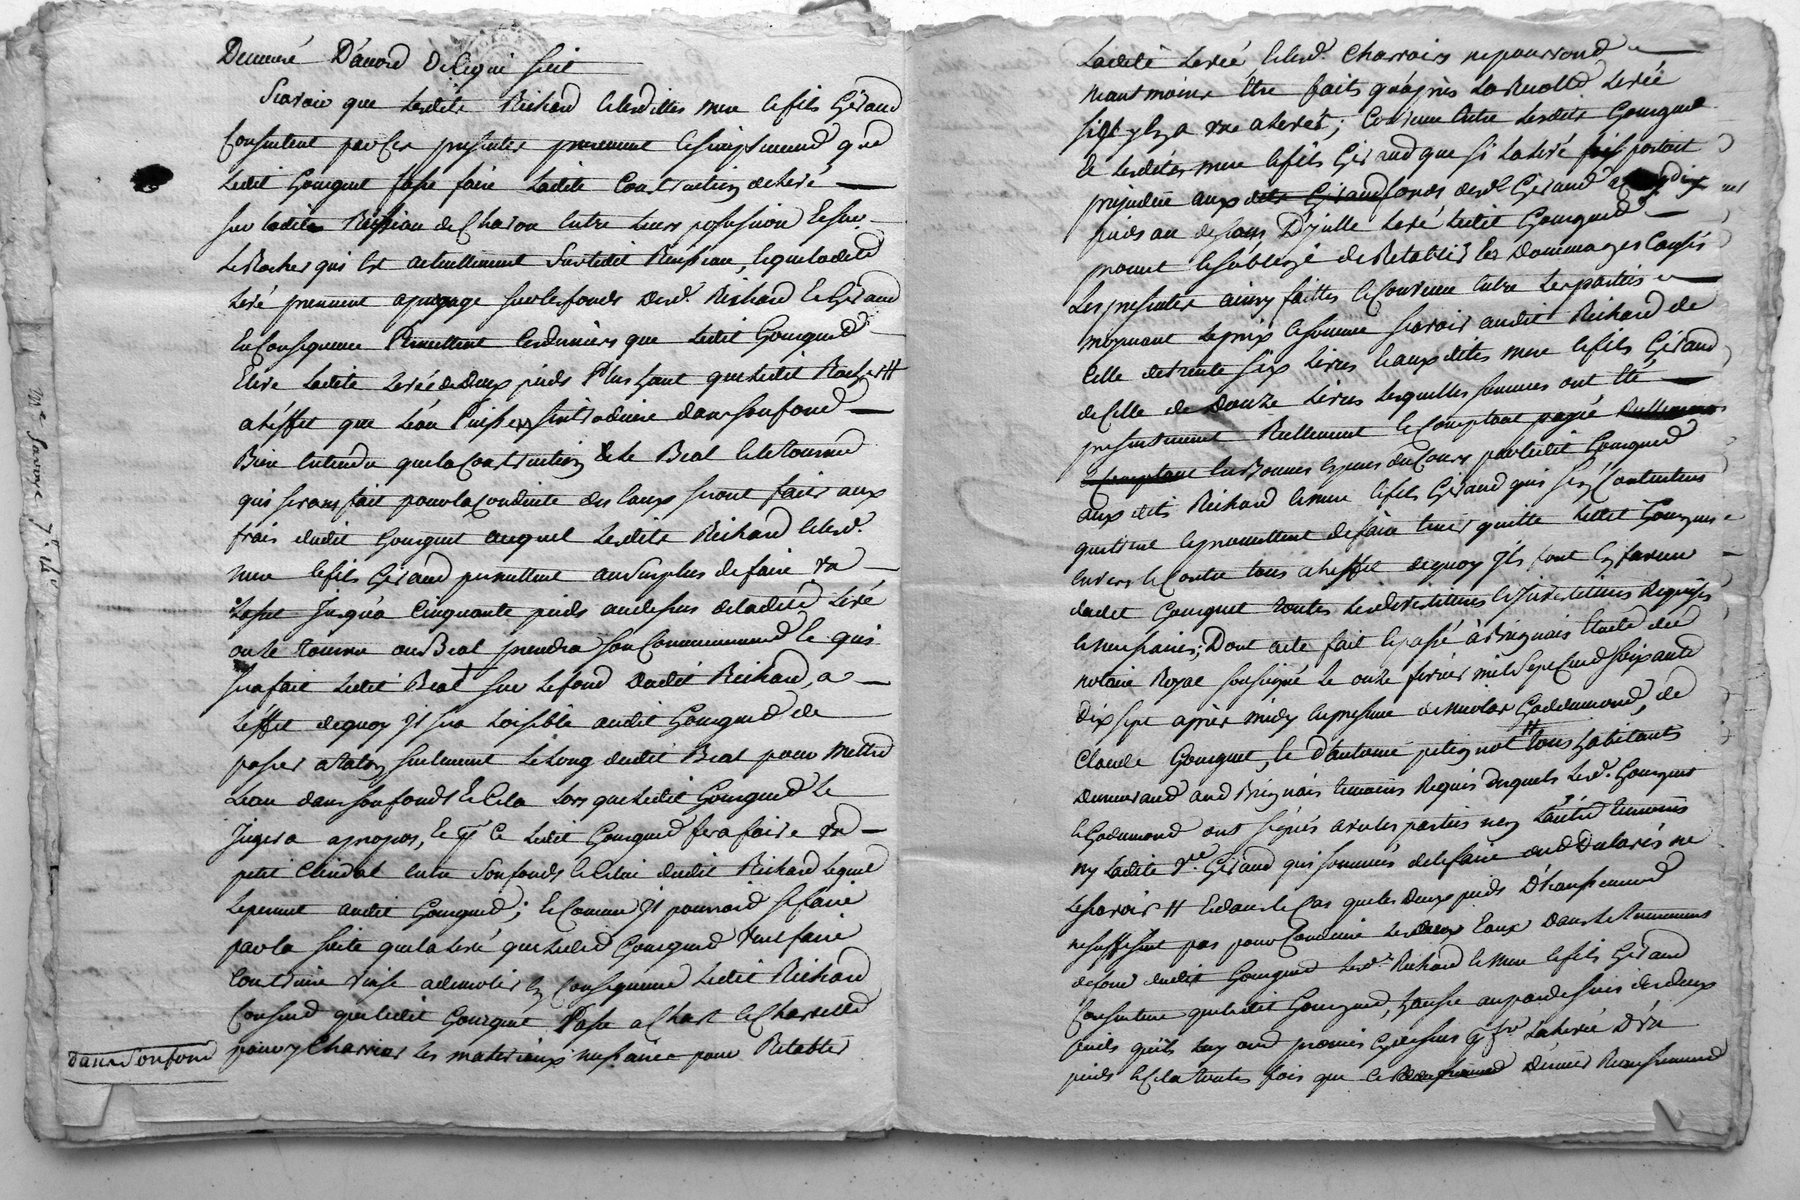 Demeuré D'acord De Ceque suit
Scavoir que lesdits Richard et lesdittes mere et fils Giraud
Consentent par Ces presentes purement et simplement que
Ledit Gourguet fasse faire Ladite Construction de levé
sur ladite Ruisseau de Charon entre leurs possession et sur
Le Rocher qui Est actuellement Sur ledit Ruisseau, et que ladite
Levé prennent apuyage sur les fonds desd. Richard et Giraud
En Consequence Permettent Ces derniers que Ledit Gourgued
Eleve Ladite Levée de Deux pieds Plus haut que ledit Rocher #
a l'effet que L'éau Puisse s'introduire dans son fond
Bien Entendu que la Construction de le Beal et le tourne
qui seront fait pour la Conduite des Eaux seront faits aux
frais dudit Gourguet auquel Lesdits Richard et lesd.
mere et fils Giraud permettent au Surplus de faire un
Jusqu'a Cinquante pieds au dessus de ladite Levé
ou le Tourne ou Beal prendra son Commencement et qui
sera fait Ledit Beal sur Le fond dudit Richard, a
L'effet de quoy Il sera Loisible audit Gourgued de
passer a talon seulement Le Long dudit Beal pour Mettre
L'eau dans son fonds Et Cela Lors que Ledit Gourgued Le
Jugera apropos, Et Ce Ledit Gourgued fera faire un
petit Chenal entre Son fonds et Celui dudit Richard Lequel
Le permet audit Gourgued; Et Comme Il pourroit se faire
par la suite que la Levé que Ledit Gourgued veut faire
Construire vinse a demolir En Consequence Ledit Richard
Consend que Ledit Gourguet Passe a Chart et Charrette
dans Son fond
pour y Charrier Les materiaux necessaire pour Retablir
Ladite Levée et lesd. Charrois ne pourrond
neantmoins Etre faits qu'après La Recolte Levée
si Il y En a une a lever; Convenu Entre Lesdits Gourgued
Et Lesdites mere et fils Giraud que si La Levé portoit
prejudice aux fonds desd. Giraud
pieds au dessous D'ycelle Levé Ledit Gourgued
promet et s'oblige de Retablir les Dommages Causés
Les presentes ainsy faittes et Convenu Entre Les parties
moyenant Le prix et somme scavoir audit Richard de
Celle de trente six Livres Et aux dites mere et fils Giraud
de Celle de Douze Livres Lesquelles sommes ont Eté
presentement Reellement et Comptant payé Reellement
et Comptant En Bonnes Especes du Cours par Ledit Gourgued
aux dits Richard et mere et fils Giraud qui s'en Contentent
quittent et promettent de faire tenir quitte Ledit Gourgued
Envers et Contre tous a l'effet de quoy Ils font En faveur
dudit Gourguet toutes Les devestitures et Investitures Requises
et necessaires; Dont acte fait et passé à Brignais Etude du
notaire Royal soussigné Le onze fevrier mil Sept Cend soixante
Dix sept après midy En presence de Nicolas Godemond, de
Claude Gourguet, et d'antoine petignot # tous habitants
Demeurand aud Brignais temoins Requis desquels Led. Gourguet
et Godemond ont signés avec les parties non L'autre temoins
ny Ladite Ve. Giraud qui sommés de le faire ont Declarés ne
Le scavoir # Et dans Le Cas que Les Deux pieds D'haussement
ne suffisent pas pour Conduire Les Eaux Dans Le
de fond dudit Gourgued Lesd. Richard et mere et fils Giraud
Consentent que Ledit Gourgued hausse au par dessus Les deux
pieds qu'ils Luy ont promis Cy dessus Lad. Levée D'un
pieds Et Cela toutes fois que Ce Dernier Rehaussement